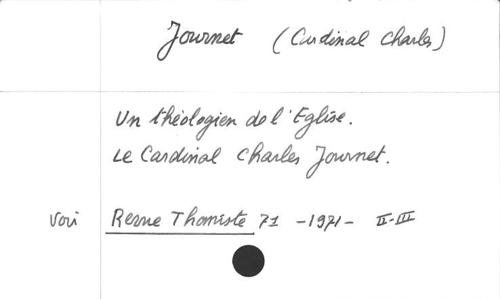 Journet (Cardinal Charles)
Un théologien de l'Eglise.
Le Cardinal Charles Journet.
Voir Revue Thomiste 71 -1971- II-III